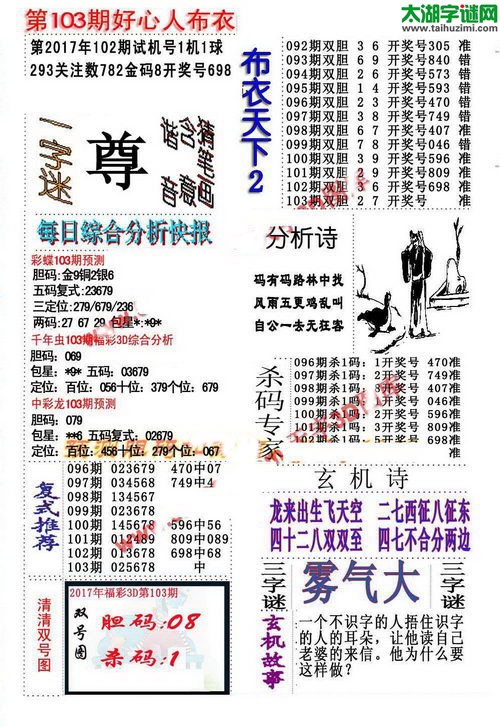 太湖字谜网
www.taihuzimi.com
第103期好心人布衣
第2017年102期试机号1机1球
293关注数782金码8开奖号698
一字迷
尊
布衣天下2
092期双胆 3 6 开奖号305 准
093期双胆 6 9 开奖号840 错
094期双胆 6 7 开奖号573 错
095期双胆 1 4 开奖号593 错
096期双胆 0 7 开奖号470 准
097期双胆 3 8 开奖号749 错
098期双胆 6 7 开奖号407 准
099期双胆 7 8 开奖号046 错
100期双胆 3 9 开奖号596 准
101期双胆 2 9 开奖号809 准
102期双胆 2 6 开奖号698 准
103期双胆 2 7 开奖号 准
每日综合分析快报
彩蝶103期预测
胆码:金9铜2银6
五码复式:23679
三定位:279/679/236
两码:27 67 29 包星*:*9*
千年虫103期福彩3D综合分析
胆码: 069
包星: *9* 五码: 03679
定位: 百位: 056十位: 379个位: 679
中彩龙103期预测
胆码: 079
包星: **6 五码复式: 02679
定位: 百位: 456十位: 279个位: 067
分析诗
码有码路林中找
风雨五更鸡乱叫
自公一去无狂客
杀码专家
096期杀1码:1开奖号 470准
097期杀1码:8开奖号 749准
098期杀1码:2开奖号 407准
玄机诗
龙来出生飞天空 二七西征八征东
四十二八双双至 四七不合分两边
复式推荐
096期 023679 470中07
097期 034568 749中4
098期 134567
099期 013578
100期 145678 596中56
102期 013678 698中68
103期 025678 中
清清双号图
2017年福彩3D第103期
双号图
胆码:08
杀码:1
三字谜
雾气大
三字谜
玄机故事
一个不识字的人捂住识字
的人的耳朵，让他读自己
老婆的来信。他为什么要
这样做?